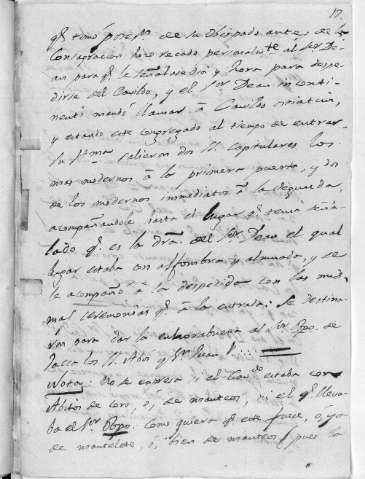 17
q.e tomó poses.on de su Obispado antes de la
Consagracion hizo recado personalm.te al S.or De-
an para q.e le señalase dia y hora para despe-
dirse del Cavildo, y el S.or Dean inconti-
nenti mandó llamar à Cavildo
y estando este congregado al tiempo de entrar
su Ill.ma salieron dos SS. Capitulares los
mas modernos à la primera puerta, y dos
de los modernos inmediatos à la segunda,
acompañandole hasta el lugar q.e tenia seña-
lado q.e es la dra. del S.or Dean el qual
lugar estaba con alfombra y almuada, y se
le acompañó à la despedida con las mis-
mas ceremonias q.e à la entrada: Se destina-
ron para dar la enhorabuena al S.or Obpo. de
Jacca los SS.
Nota: No se expresa si el Cav.do estaba con
Abitos de coro, ó, de manteos, ni el q.e lleva-
ba el S.or Obpo. Como quiera q.e este fuese, o, ya
de mantelete, ó, bien de manteos, pues la